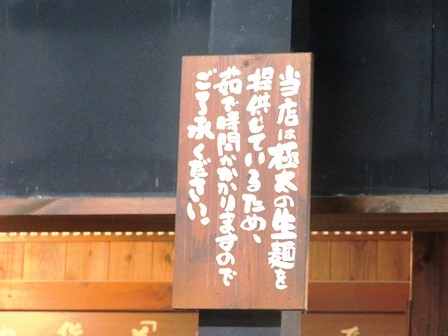 当店は極太の生麺を
提供しているため、
茹で時間がかかりますので
ご了承ください。